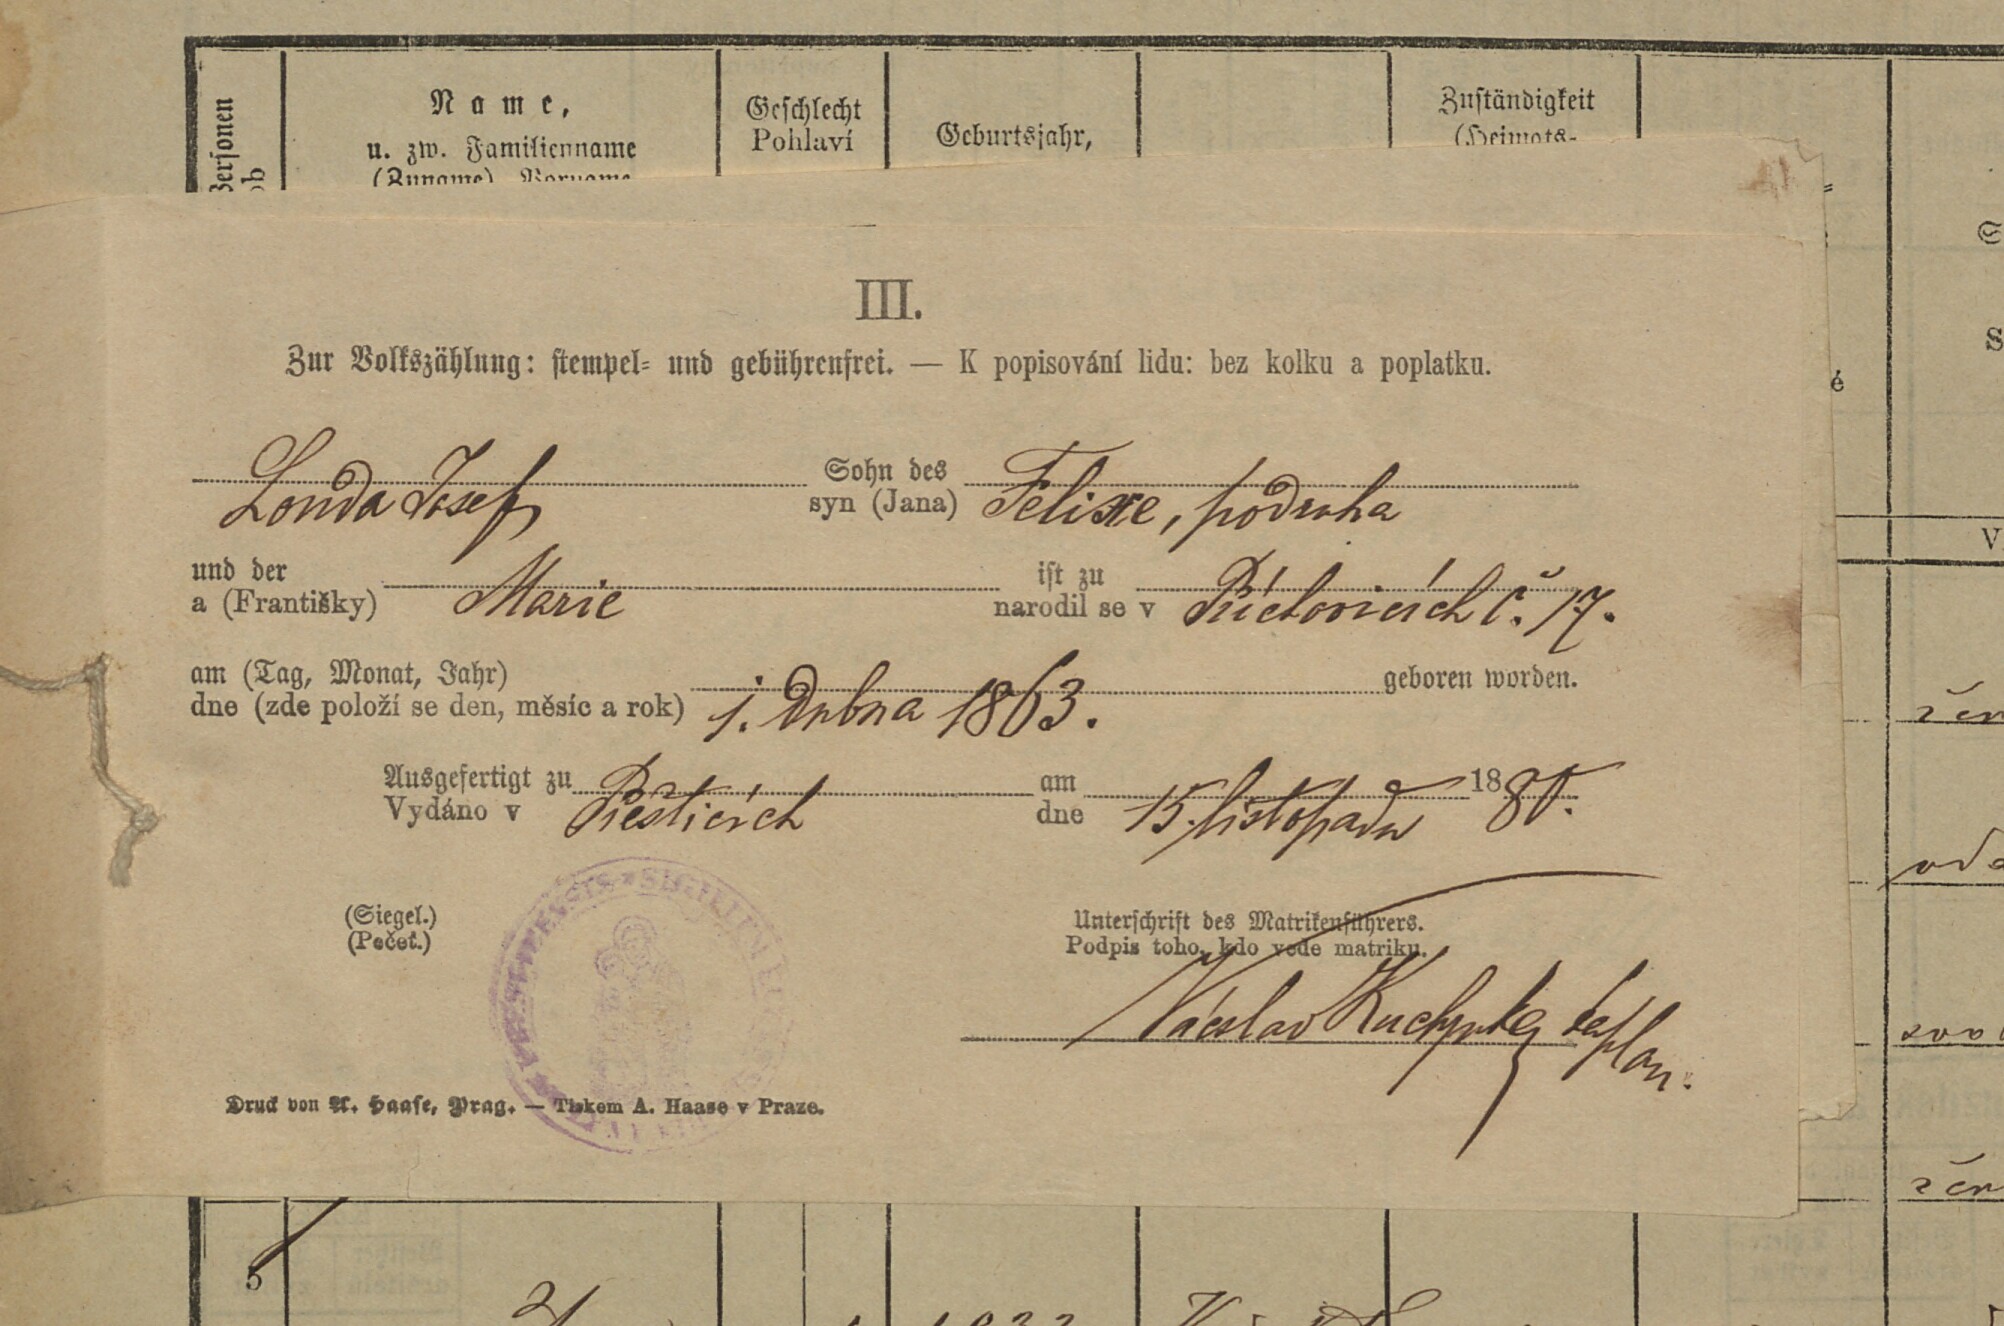 Name,
u. zw. Familienname
(Zuname), Vorname
Geschlecht
Pohlaví
Geburtsjahr,
Zuständigkeit
(Heimats-
Personen
III.
Zur Volkszählung: stempel- und gebührenfrei. — K popisování lidu: bez kolku a poplatku.
Londa Josef Sohn des
syn (Jana) Felixe, podruha
und der
a (Františky) Marie ist zu
narodil se v Příchovicích č. 17.
am (Tag, Monat, Jahr) geboren worden.
dne (zde položí se den, měsíc a rok) 1. dubna 1863.
Ausgefertigt zu am 1880.
Vydáno v Přešticích dne 15. listopadu
(Siegel.)
(Pečeť.)
Unterschrift des Matrikenführers.
Podpis toho, kdo vede matriku.
Václav kaplan.
Druck von A. Haase, Prag. — Tiskem A. Haase v Praze.
5